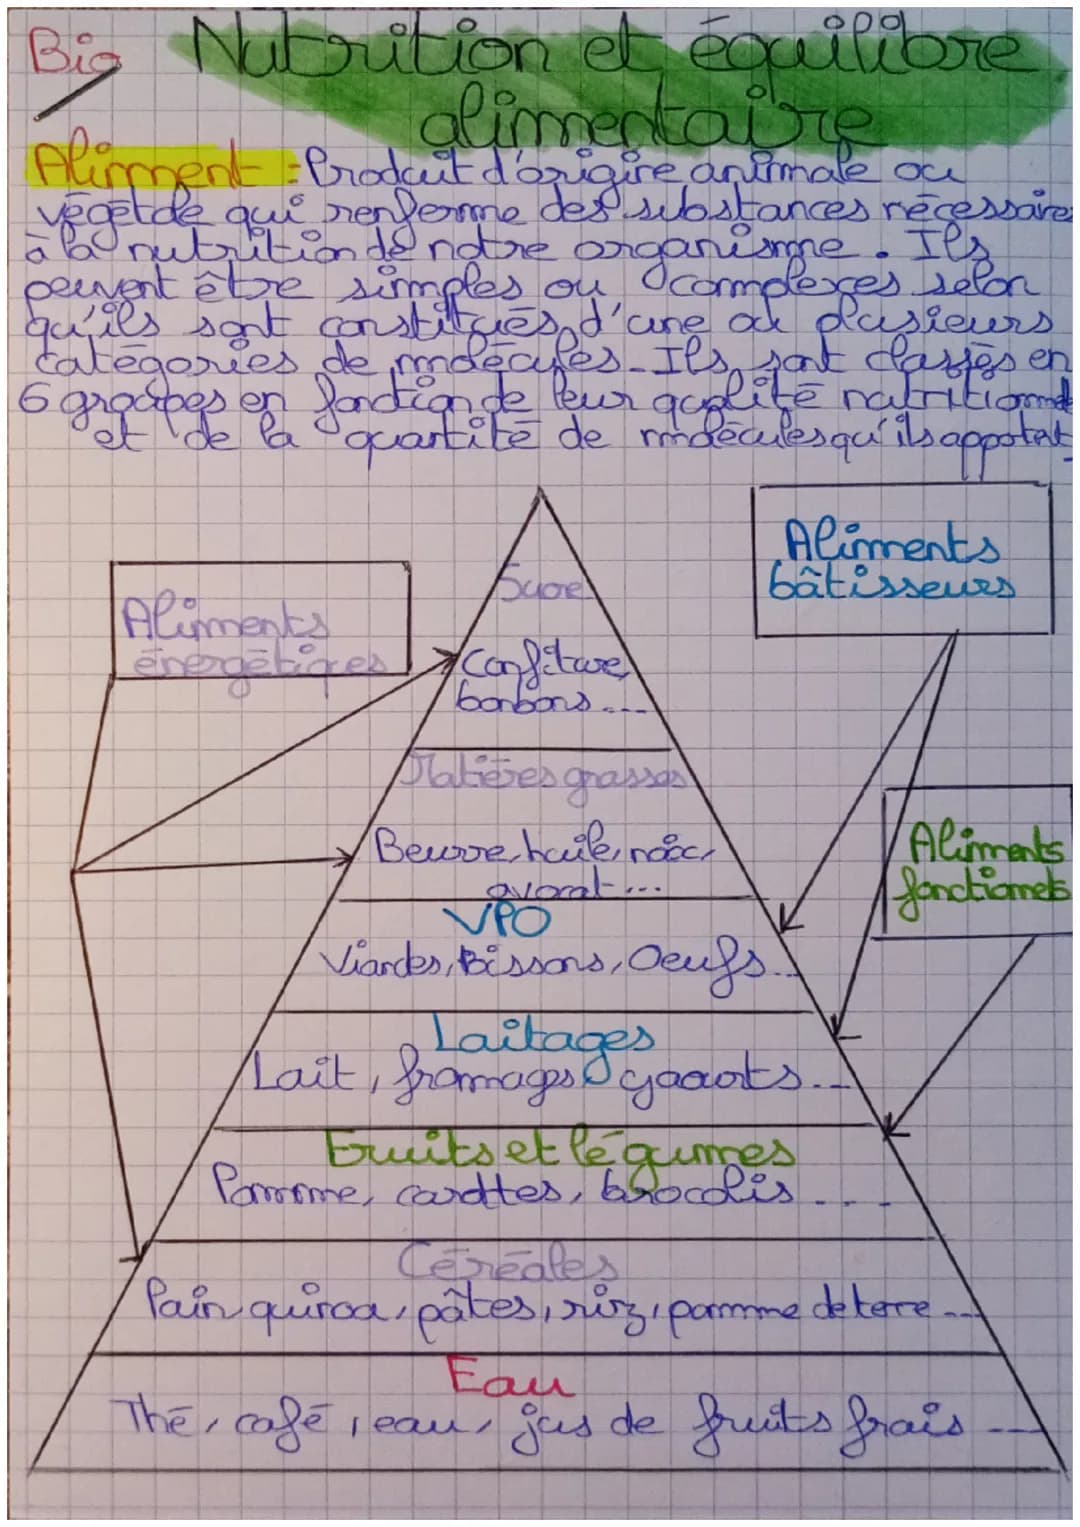 Bio Nutrition et équilibre
alimentaire
Aliment : Produit d'origine animale ou
végétale qui renferme des substances nécessaires
à la nutrition de notre organisme. Ils
peuvent être simples ou complexes selon
qu'ils sont constitués d'une ou plusieurs
catégories de molécules. Ils sont classés en
6 groupes en fonction de leur qualité nutritionnel
et de la quantité de molécules qu'ils apportent
Aliments
bâtisseurs
Aliments
énergétiques
Sucre
Confiture,
bonbons ....
Matières grasses
Beurre, huile, noix,
avocat ...
Aliments
fonctionnels
VPO
Viandes, Poissons, Oeufs...
Laitages
Lait, fromages yaourts...
Fruits et légumes
Pomme, carottes, brocolis ....
Céréales
Pain, quinoa, pâtes, riz, pomme de terre ...
Eau
Thé, café, eau, jus de fruits frais ...